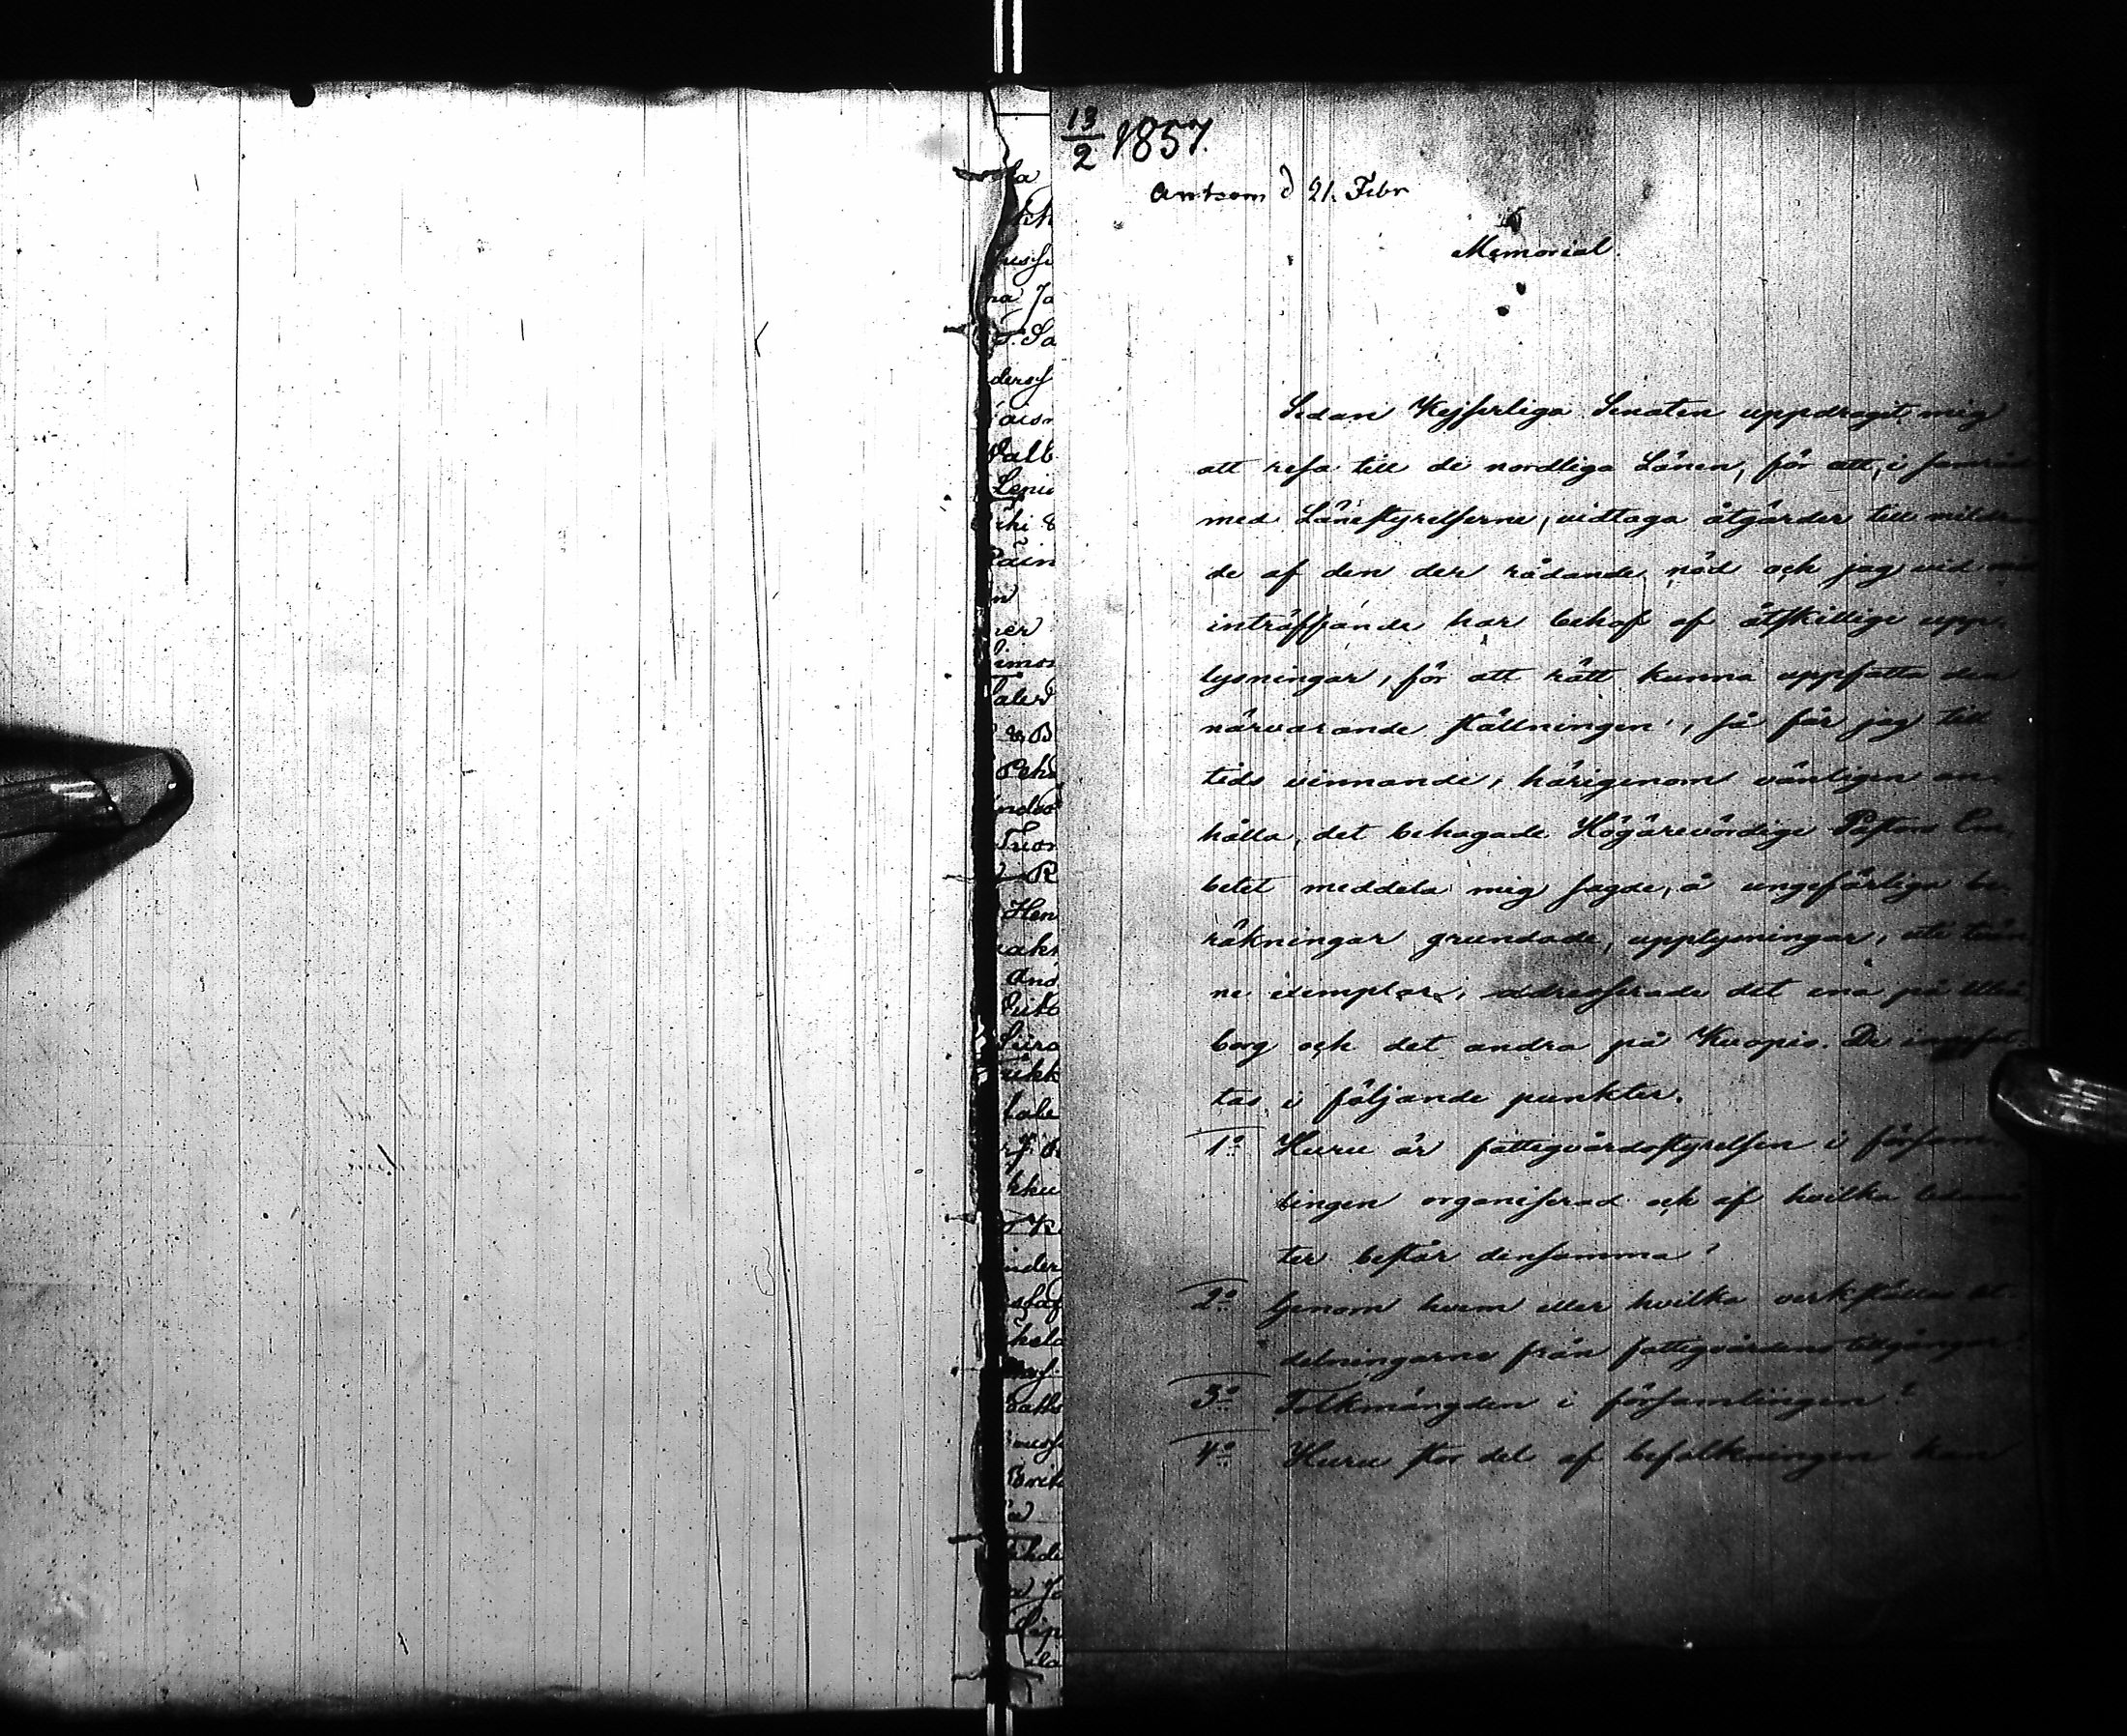 13/2 1857.
Ank som d 21. Febr
Memorial.
Sedan Kejserliga Senaten uppdragit mig
att resa till de nordliga Länen, för att, i samråd
med Länestyrelserne, vidtaga åtgärder till mildran
de af den der rådande nöd och jag vid
inträffande har behof af åtskillige upp-
lysningar, för att rätt kunna uppfatta den
närvarande ställningen, så får jag till
tids vinnande, härigenom vänligen an-
hålla, det behagade Högärevördige Pastors Em-
betet meddela mig sagde, å ungefärliga be-
räkningar grundade, upplysningar, uti tvän-
ne exemplar, addresserade det ena på Uleå
borg och det andra på Kuopio. De innefat-
tas i följande punkter.
1:o Huru är fattigvårdsstyrelsen i försam
lingen organiserad och af hvilka ledamö
ter består densamma?
2:o Genom hvem eller hvilka verkställas ut-
delningarne från fattigvårdens tillgångar?
3:o Folkmängden i församlingen?
4:o Huru stor del af befolkningen kan